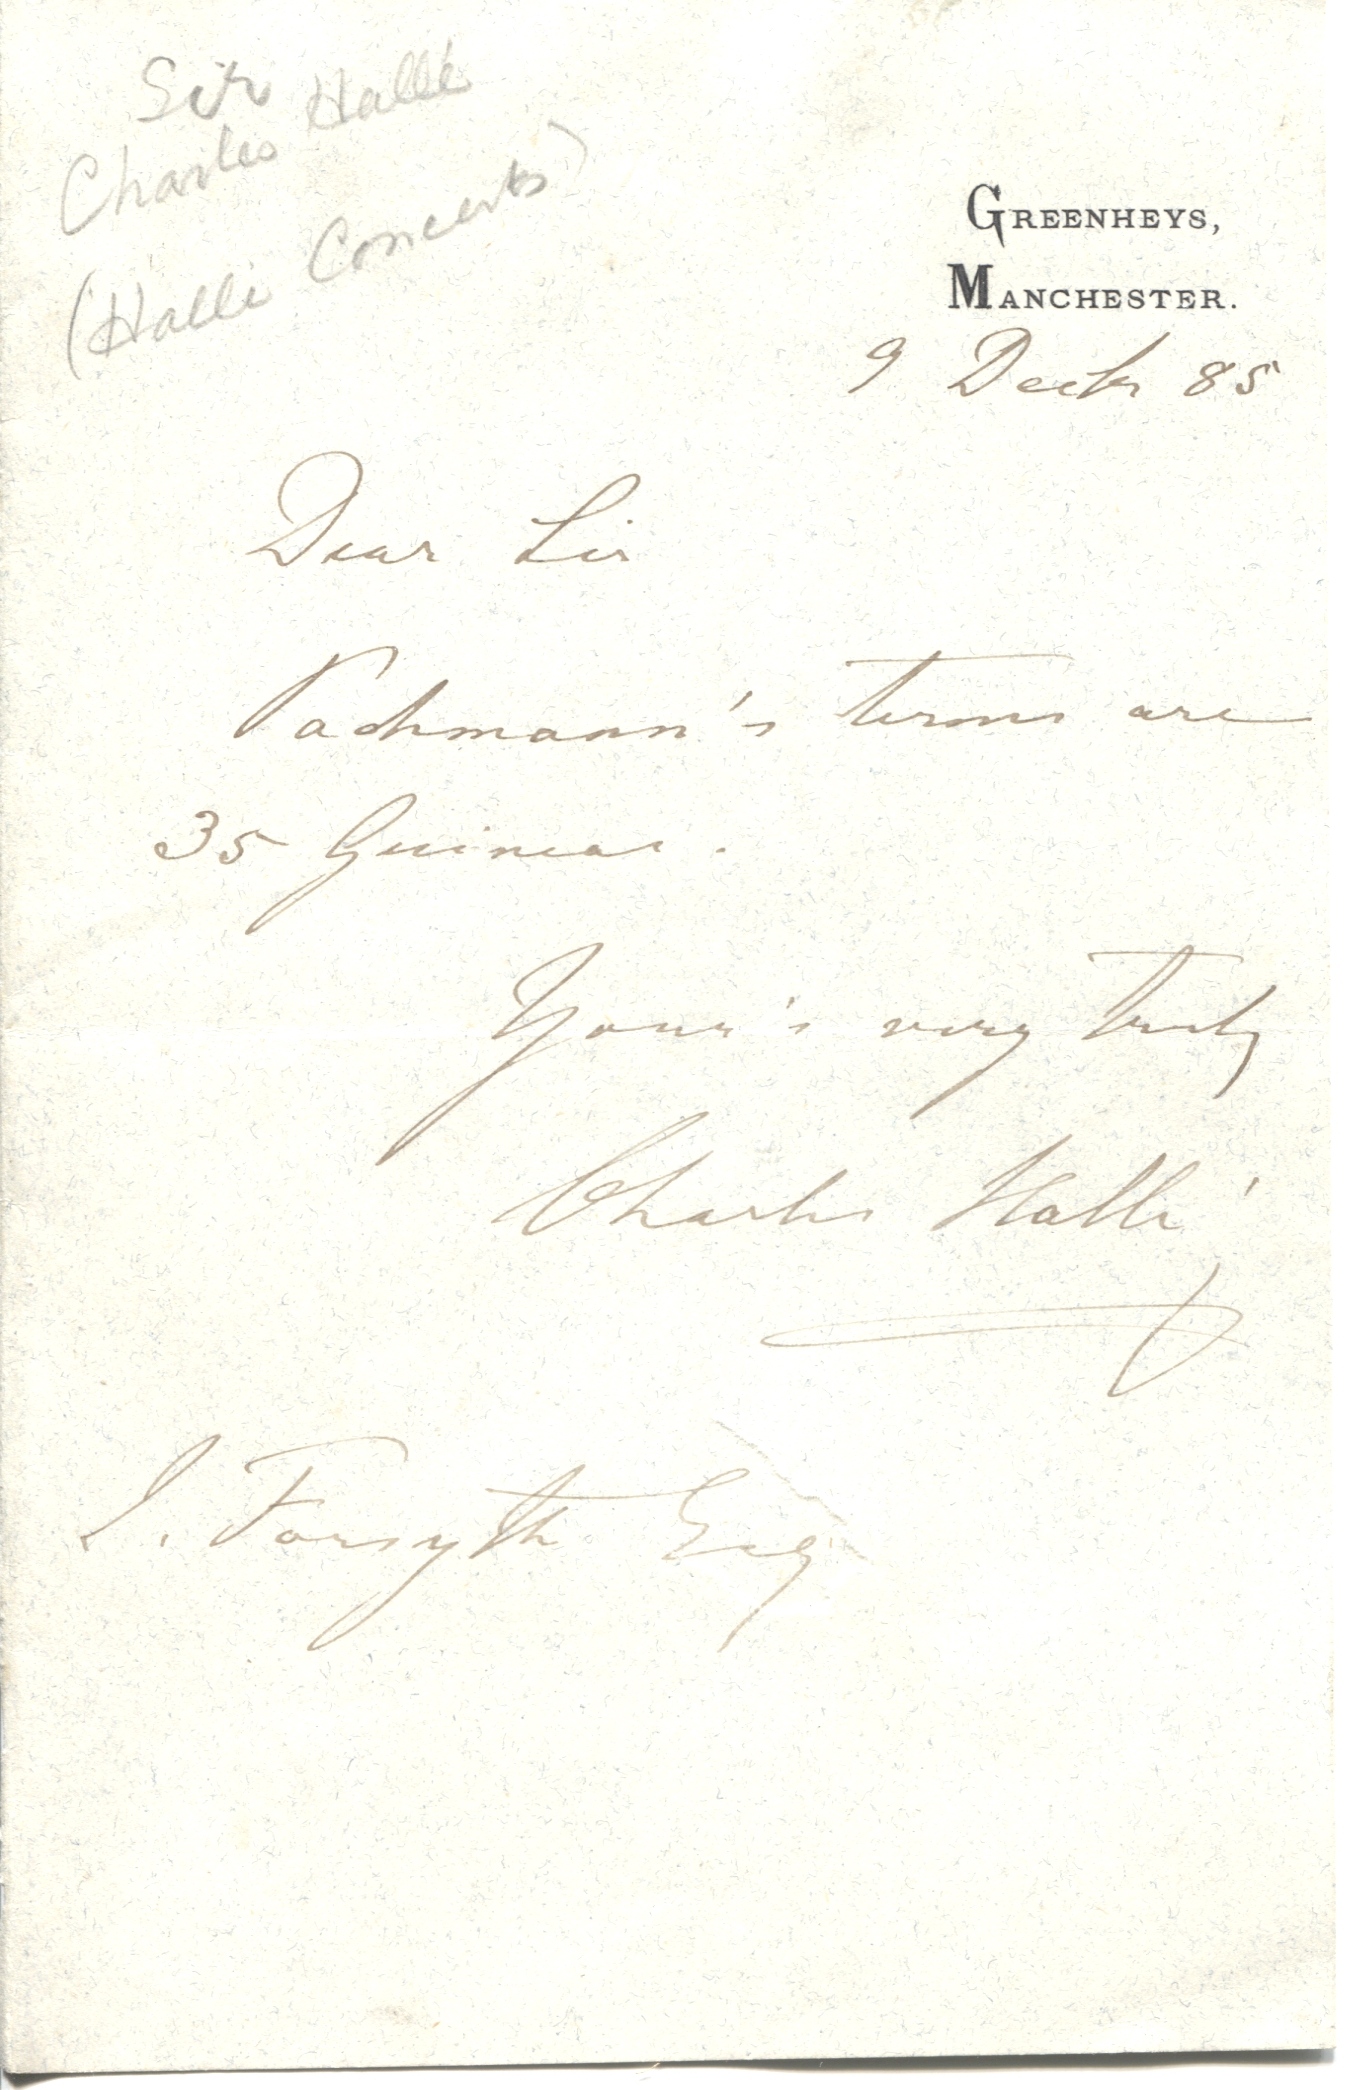 Sir
Charles Hallé
(Halle Concerts)
GREENHEYS,
MANCHESTER.
9 Decbr 85
Dear Sir
Pachmann's terms are
35 Guineas.
Your's very truly
Charles Hallé
J. Forsyth Esq